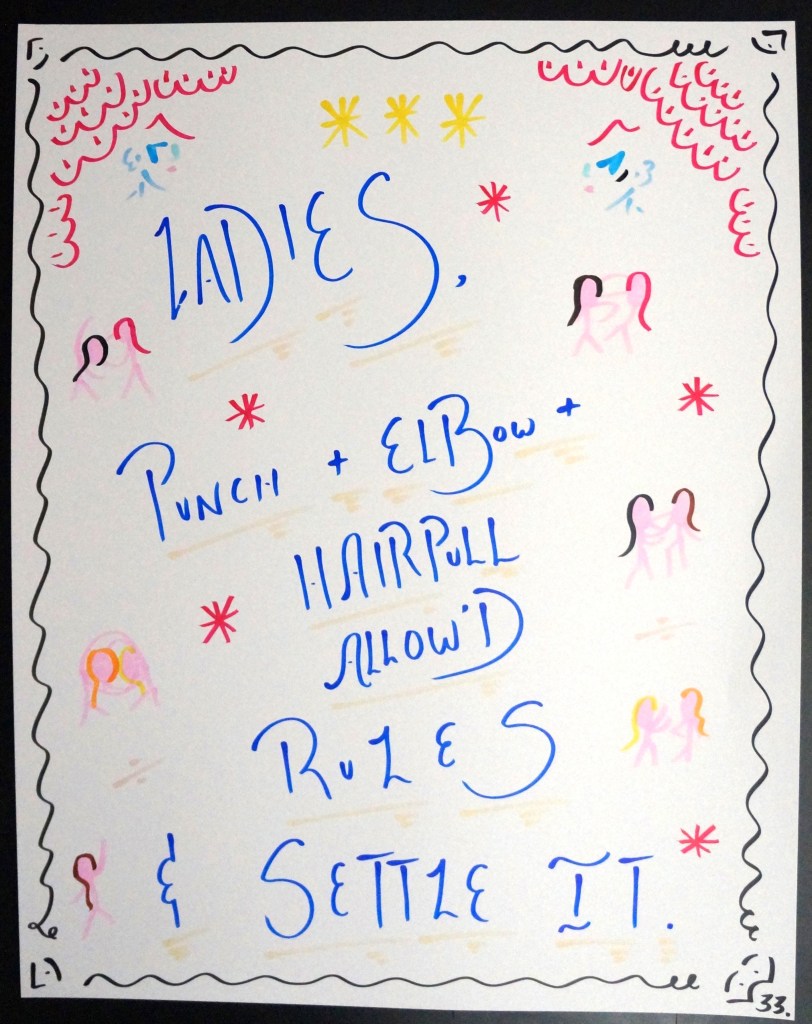 LADIES,
PUNCH + ELBOW +
HAIRPULL
ALLOW'D
RULES
& SETTLE IT.
33.